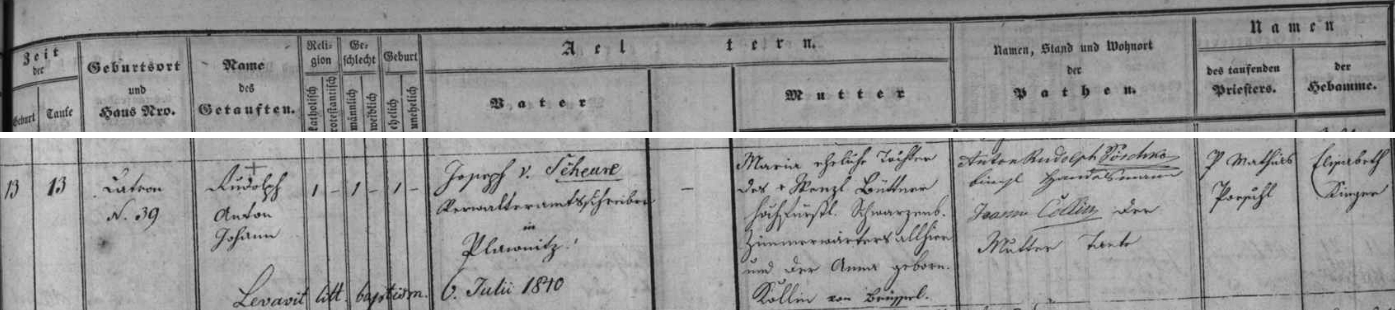 Zeit
der
Geburt
Taufe
Geburtsort
und
Haus Nro.
Name
des
Getauften.
Reli-
gion
katholisch
protestantisch
Ge-
schlecht
männlich
weiblich
Geburt
ehelich
unehelich
Aeltern.
Vater
Mutter
Namen, Stand und Wohnort
der
Pathen.
Namen
des taufenden
Priesters.
der
Hebamme.
13
13
N. 39
Rudolph
Anton
Johann
1 - 1 - 1 -
Joseph v. Scheure
Verwalteramtsschreiber
in
Plawnitz.
-
Maria eheliche Tochter
des Wenzl Büttner
hochfürstl. Schwarzenb.
Zimmerwärters allhier
und der Anna geborn.
Köllin von Brüssel.
Anton Rudolph Pöschko
Handelsmann
Joanna Collin der
Mutter Tante
P Mathias
Elisabeth
Levavit litt. baptism. 6. Julii 1810